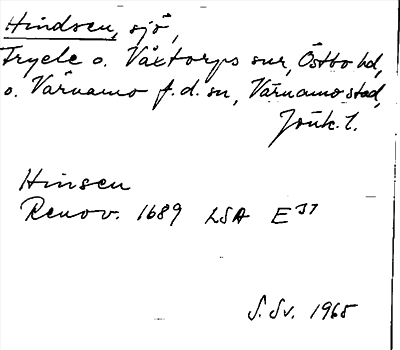 Hindsen, sjö,
Tryele o. Våxtorps snr, Östbo hd,
o. Värnamo f.d. sn, Värnamo stad,
Jönk. l.
Hinsen
Renov. 1689 LSA E 37
S. Sv. 1965